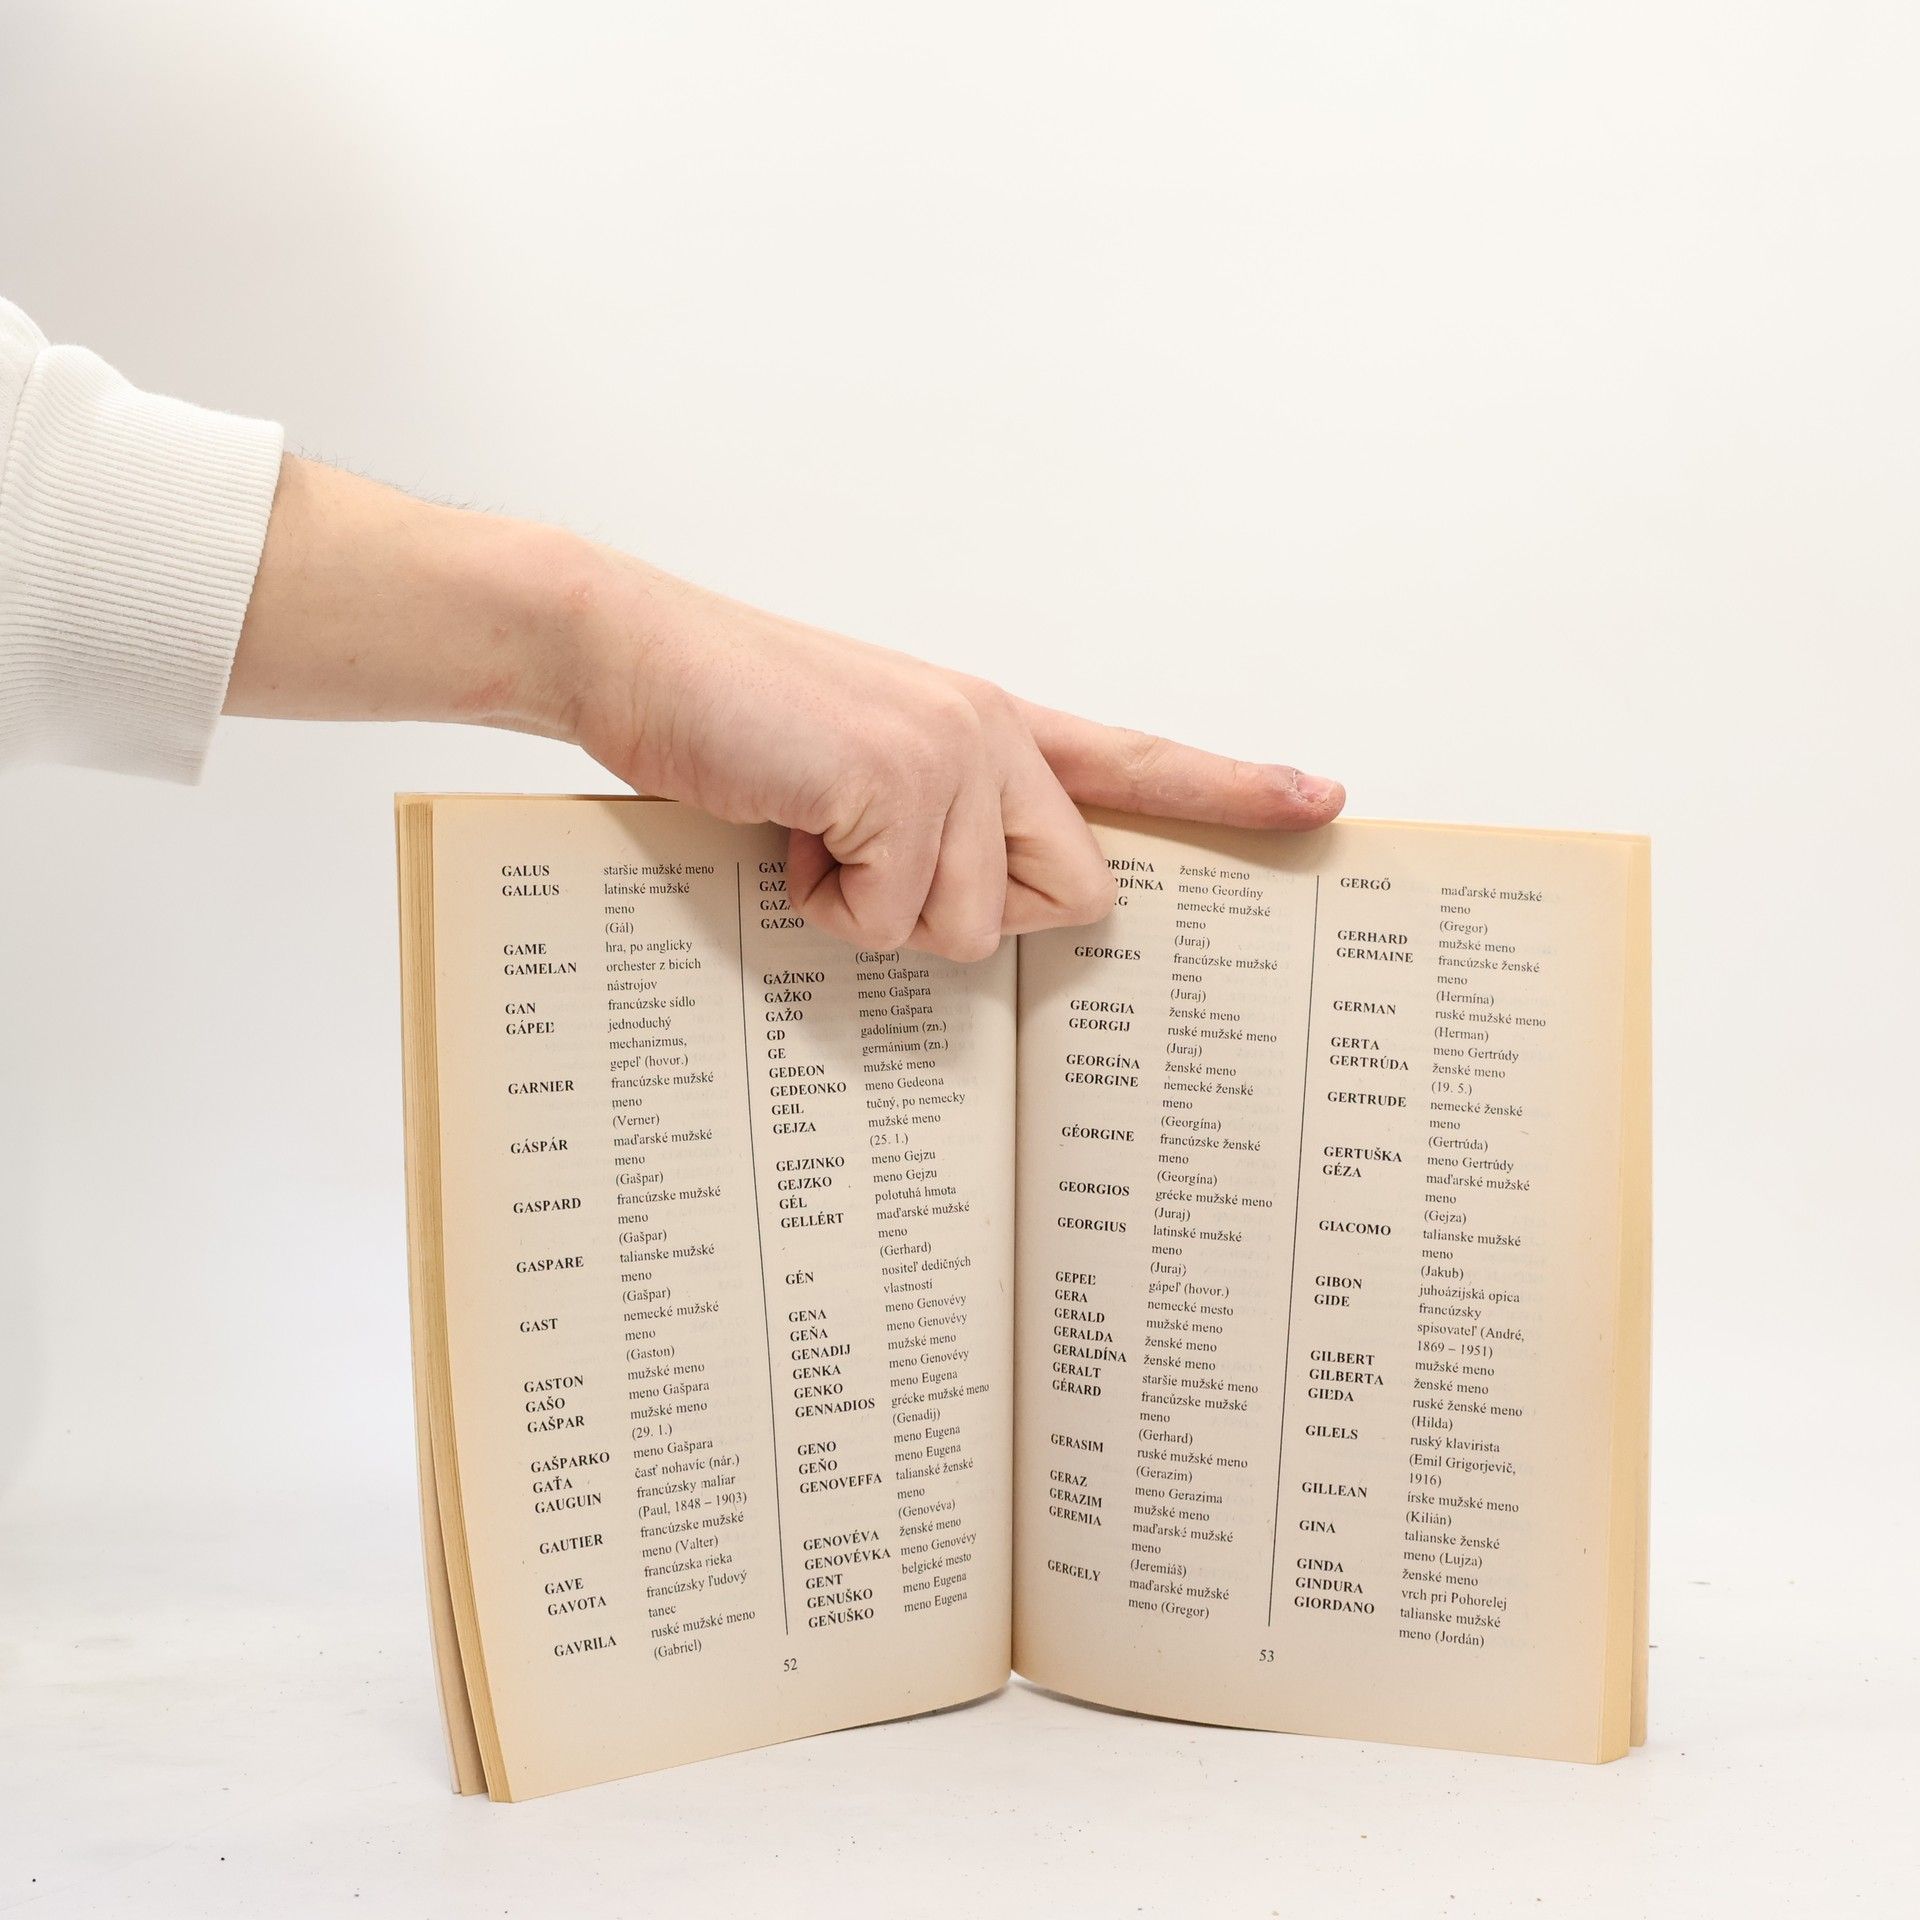 GALUS staršie mužské meno
GALLUS latinské mužské
meno
(Gál)
GAME hra, po anglicky
GAMELAN orchester z bicích
nástrojov
GAN francúzske sídlo
GÁPEĽ jednoduchý
mechanizmus,
gepeľ (hovor.)
GARNIER francúzske mužské
meno
(Verner)
GÁSPÁR maďarské mužské
meno
(Gašpar)
GASPARD francúzske mužské
meno
(Gašpar)
GASPARE talianske mužské
meno
(Gašpar)
GAST nemecké mužské
meno
(Gaston)
GASTON mužské meno
GAŠO meno Gašpara
GAŠPAR mužské meno
(29. 1.)
GAŠPARKO meno Gašpara
GAŤA časť nohavíc (nár.)
GAUGUIN francúzsky maliar
(Paul, 1848 – 1903)
GAUTIER francúzske mužské
meno (Valter)
GAVE francúzska rieka
GAVOTA francúzsky ľudový
tanec
GAVRILA ruské mužské meno
(Gabriel)
GAZSO
(Gašpar)
GAŽINKO meno Gašpara
GAŽKO meno Gašpara
GAŽO meno Gašpara
GD gadolínium (zn.)
GE germánium (zn.)
GEDEON mužské meno
GEDEONKO meno Gedeona
GEIL tučný, po nemecky
GEJZA mužské meno
(25. 1.)
GEJZINKO meno Gejzu
GEJZKO meno Gejzu
GÉL polotuhá hmota
GELLÉRT maďarské mužské
meno
(Gerhard)
GÉN nositeľ dedičných
vlastností
GENA meno Genovévy
GEŇA meno Genovévy
GENADIJ mužské meno
GENKA meno Genovévy
GENKO meno Eugena
GENNADIOS grécke mužské meno
(Genadij)
GENO meno Eugena
GEŇO meno Eugena
GENOVEFFA talianské ženské
meno
(Genovéva)
GENOVÉVA ženské meno
GENOVÉVKA meno Genovévy
GENT belgické mesto
GENUŠKO meno Eugena
GEŇUŠKO meno Eugena
52
ženské meno
meno Geordíny
nemecké mužské
meno
(Juraj)
GEORGES francúzske mužské
meno
(Juraj)
GEORGIA ženské meno
GEORGIJ ruské mužské meno
(Juraj)
GEORGÍNA ženské meno
GEORGINE nemecké ženské
meno
(Georgína)
GÉORGINE francúzske ženské
meno
(Georgína)
GEORGIOS grécke mužské meno
(Juraj)
GEORGIUS latinské mužské
meno
(Juraj)
GEPEĽ gápeľ (hovor.)
GERA nemecké mesto
GERALD mužské meno
GERALDA ženské meno
GERALDÍNA ženské meno
GERALT staršie mužské meno
GÉRARD francúzske mužské
meno
(Gerhard)
GERASIM ruské mužské meno
(Gerazim)
GERAZ meno Gerazima
GERAZIM mužské meno
GEREMIA maďarské mužské
meno
(Jeremiáš)
GERGELY maďarské mužské
meno (Gregor)
GERGŐ maďarské mužské
meno
(Gregor)
GERHARD mužské meno
GERMAINE francúzske ženské
meno
(Hermína)
GERMAN ruské mužské meno
(Herman)
GERTA meno Gertrúdy
GERTRÚDA ženské meno
(19. 5.)
GERTRUDE nemecké ženské
meno
(Gertrúda)
GERTUŠKA meno Gertrúdy
GÉZA maďarské mužské
meno
(Gejza)
GIACOMO talianske mužské
meno
(Jakub)
GIBON juhoázijská opica
GIDE francúzsky
spisovateľ (André,
1869 – 1951)
GILBERT mužské meno
GILBERTA ženské meno
GIĽDA ruské ženské meno
(Hilda)
GILELS ruský klavirista
(Emil Grigorjevič,
1916)
GILLEAN írske mužské meno
(Kilián)
GINA talianske ženské
meno (Lujza)
GINDA ženské meno
GINDURA vrch pri Pohorelej
GIORDANO talianske mužské
meno (Jordán)
53